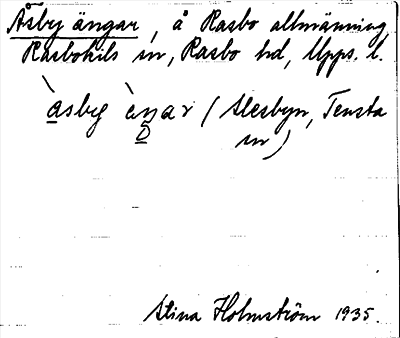 Åsby ängar, å Rasbo allmänning,
Rasbokils sn, Rasbo hd, Upps. l.
àsbyg èŋar (Alesbyn, Tensta
sn)
Stina Holmström 1935.